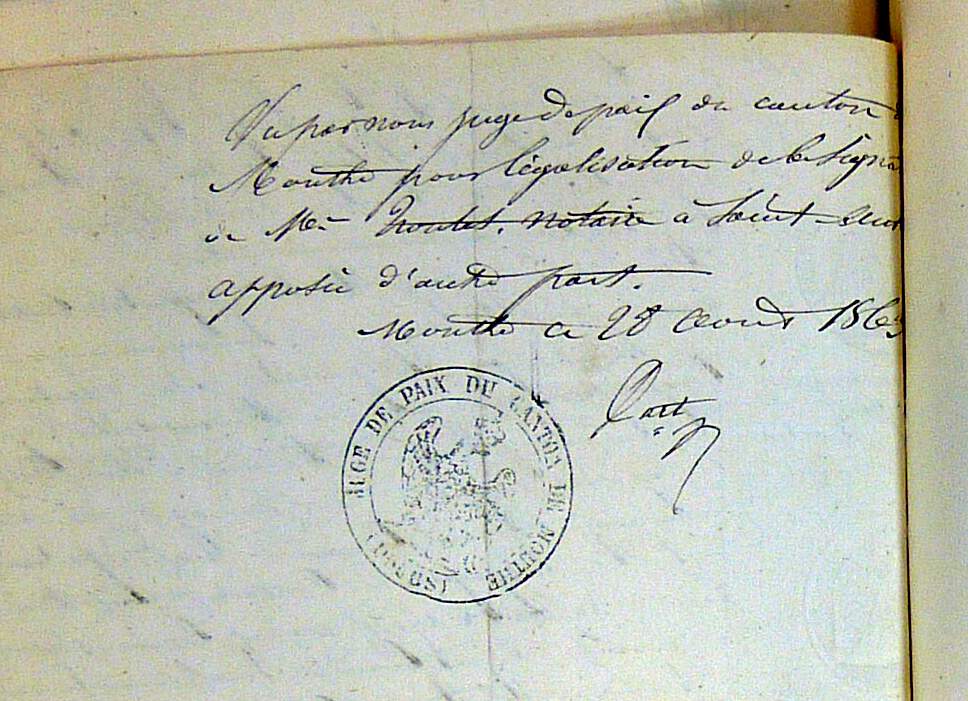 Vu par nous juge de paix du canton d
Mouthe pour légalisation de la Signa
de Me notaire à Saint-
apposée d'autre part.
Mouthe ce 28 Aout 186
JUGE DE PAIX DU CANTON DE MOUTHE
(DOUBS)